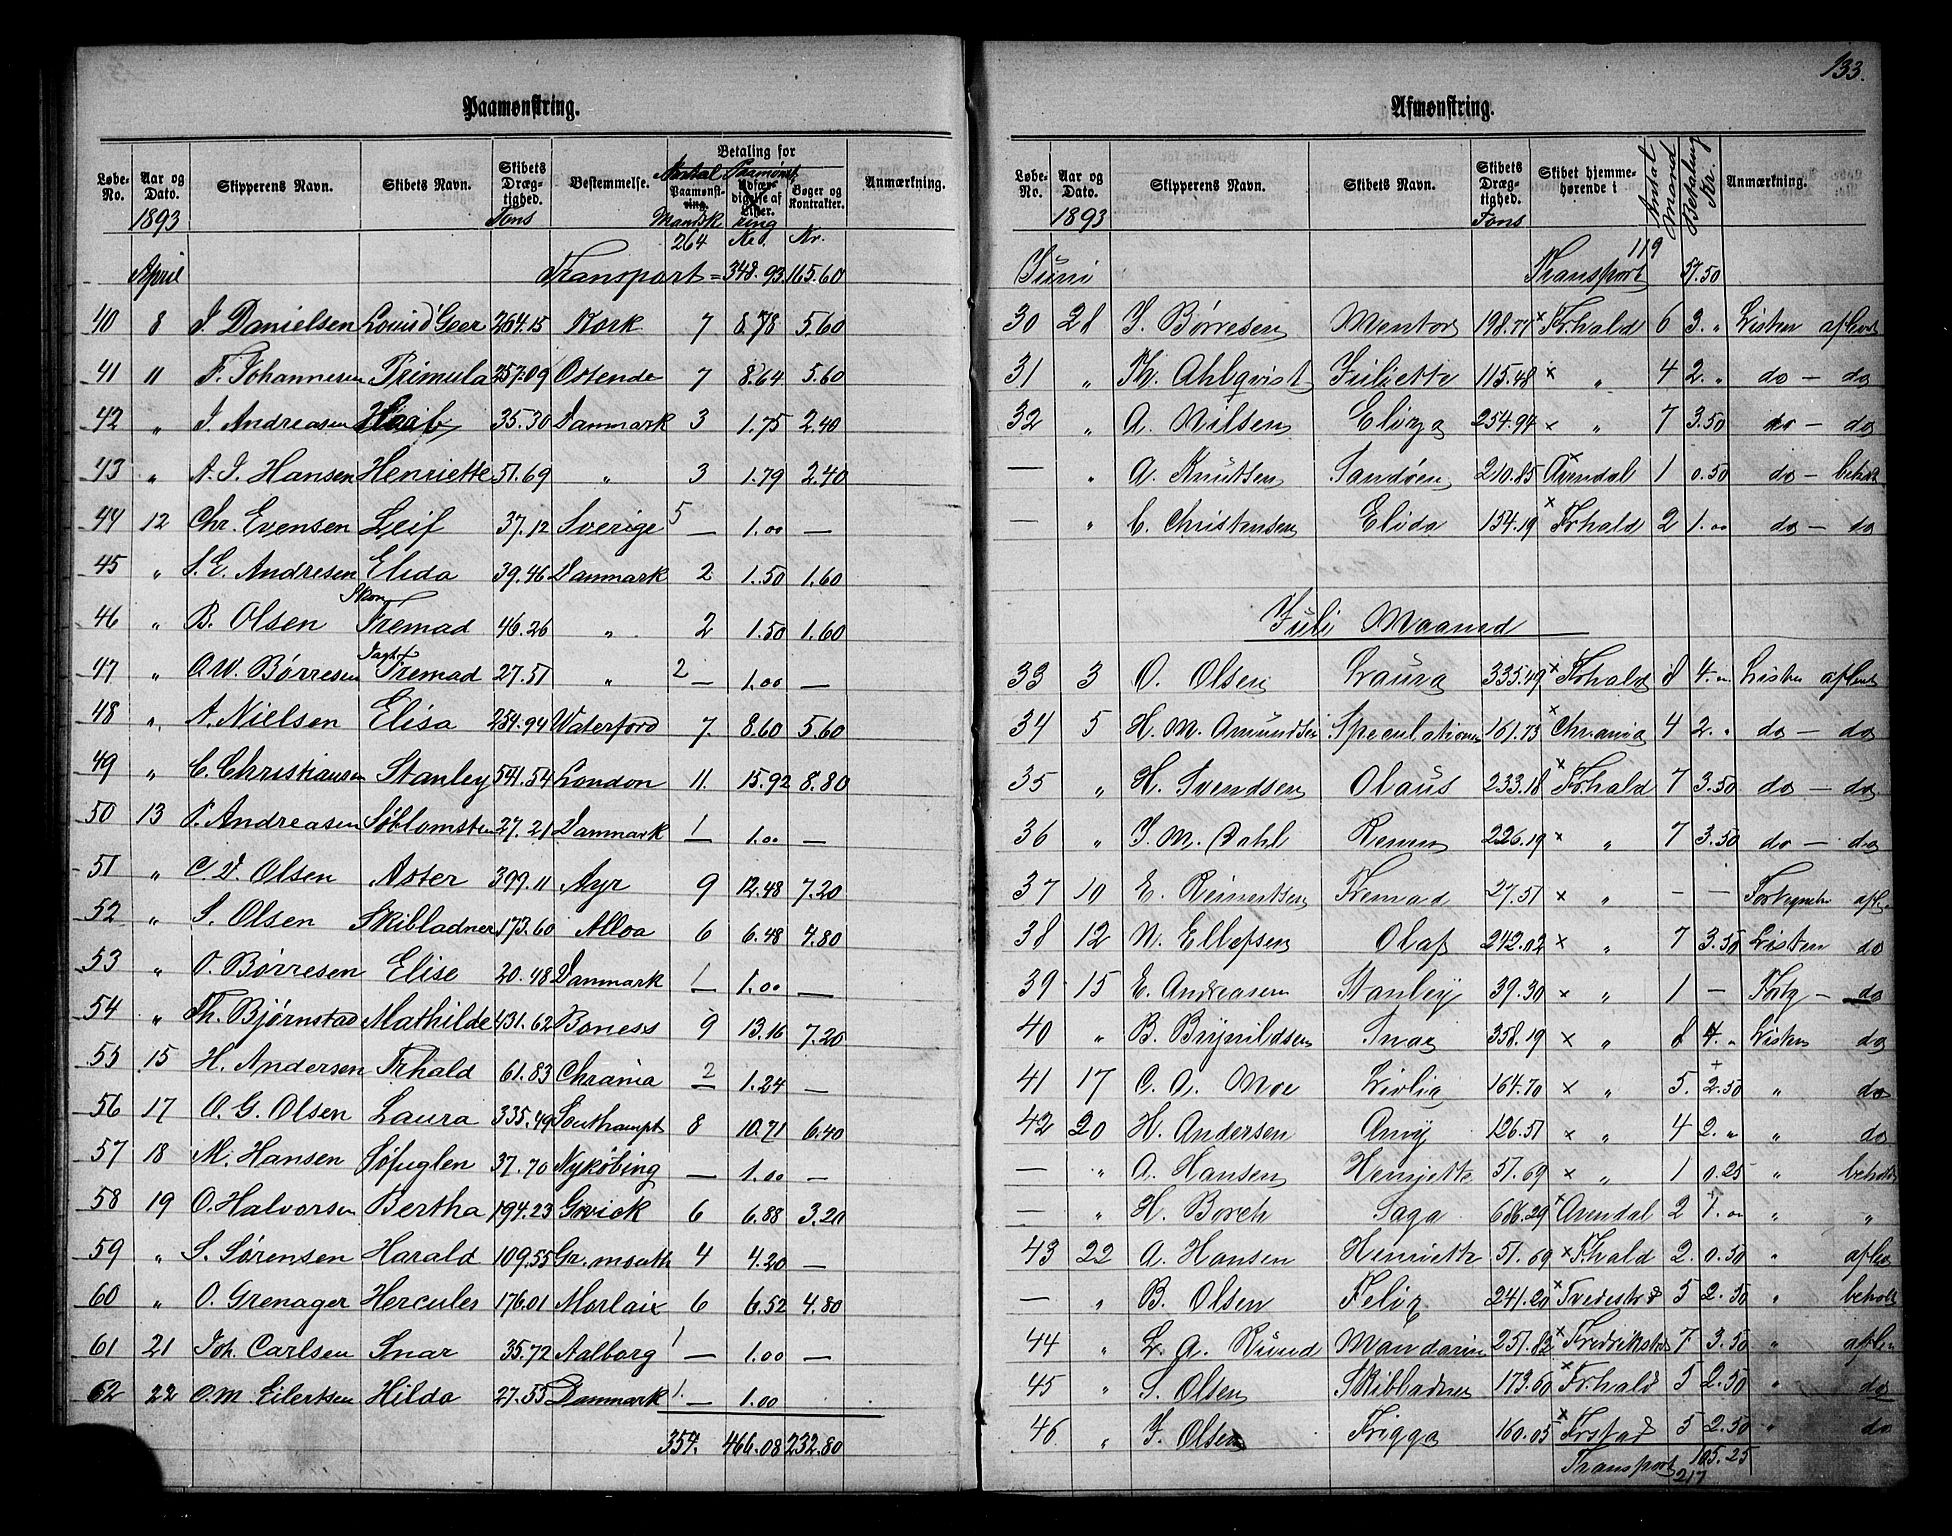 Paamønstring.
Løbe-No. Aar og Dato. 1893 Skipperens Navn. Skibets Navn. Skibets Dræg-tighed. Tons Bestemmelse. Betaling for Antal Paamønst-ring. Mandsk Paamønst Udfær-digelse af Lister. ring Bøger og Kontrakter. Anmærkning.
264 Kr. Kr.
April Transport = 348.93 165.60
40 8 J. Danielsen Louis d'Geer 264.15 Kork 7 8.78 5.60
41 11 F. Johannesen Primula 257.09 Ostende 7 8.64 5.60
42 " J. Andreasen Haab 35.30 Danmark 3 1.75 2.40
43 " A. J. Hansen Henriette 51.69 " 3 1.79 2.40
44 12 Chr. Evensen Leif 37.12 Sverige 5 — 1.00 —
45 " S. E. Andresen Elida 39.46 Danmark 2 1.50 1.60
46 " B. Olsen Skon Fremad 46.26 " 2 1.50 1.60
47 " O.W. Børresen Jagt Fremad 27.51 " 2 — 1.00 —
48 " A. Nielsen Elisa 254.94 Waterford 7. 8.60 5.60
49 " C. Christiansen Stanley 541.54 London 11. 15.92 8.80
50 13 P. Andreasen Søblomsten 27.21 Danmark 1 — 1.00 —
51 " C. V. Olsen Aster 399.11 Ayr 9 12.48 7.20
52 " S. Olsen Skibladner 173.60 Alloa 6 6.48 4.80
53 " O. Børresen Elise 20.48 Danmark 1 — 1.00 —
54 " Th. Bjørnstad Mathilde 431.62 Boness 9 13.16 7.20
55 15 H. Andersen Frhald 61.83 Chrania 2 — 1.24 —
56 17 O. G. Olsen Laura 335.49 Southampt 8 10.71 6.40
57 18 M. Hansen Søfuglen 37.70 Nykøbing — 1.00 —
58 19 O. Halvorsen Bertha 194.23 Gwick 6 6.88 3.20
59 " S. Sørensen Harald 109.55 Gr. mouth 4 4.20 —
60 " O. Grenager Hercules 176.01 Morlaix 6 6.52 4.80
61 21 Joh. Carlsen Snar 35.72 Aalborg 1 — 1.00 —
62 22 O.M. Eilertsen Hilda 27.55 Danmark 1. — 1.00 .
357. 466.08 232.80
133.
Afmønstring.
Løbe-No. Aar og Dato. 1893 Skipperens Navn. Skibets Navn. Skibets Dræg-tighed. Tons Skibet hjemme-hørende i Antal Mand Betaling Kr. Anmærkning.
Juni Transport 119 57.50
30 28 J. Børresen Mentor 198.77 × Frhald 6 3. " Listen afleve
31 " Th. Ahlqvist Juliette 115.48 × " 4 2. " do — do
32 " A. Nilsen Eliza 254.94 × " 7 3.50 do — do
— " A. Knutsen Sandøen 210.85 × Arendal 1 0.50 do — beholt
— " C. Christensen Elida 154.19 × Frhald 2 1.00 do — do
Juli Maaned
33 3 O. Olsen Laura 335.49 × Frhald 8 4. " Listen aflevt
34 5 H. M. Amundsen Speculationen 161.73 × Chrania 4 2. " do — do
35 " H. Svendsen Olaus 233.18 × Frhald 7 3.50 do — do
36 " J. M. Dahl 226.19 × " 7 3.50 do — do
37 10 E. Reinertsen Fremad 27.51 × " — —
38 12 N. Ellefsen Olaf 242.02 × " 7 3.50 Listen do
39 15 E. Andreasen Stanley 39.30 × " 1 — — do
40 " B. Brynildsen Snar 358.19 × " 8 4. " Listen do
41 17 C. A. Moe Livlig 164.70 × " 5. 2.50 " do
42 20 H. Andersen Amy 126.51 × " 4 2. " " do
— " A. Hansen Henriette 51.69 × " 1 0.25 " beholt
— " H. Borch Saga 686.29 × Arendal 2 1. " " "
43 22 A. Hansen Henriette 51.69 × Frhald 2. 0.50 " aflev
— " B. Olsen Felix 241.20 × Tvedestrd 5 2.50 " beholt
44 " L. A. Rund Mandarin 251.82 × Fredrikstad 7. 3.50 " aflev
45 " S. Olsen Skibladner 173.60 × Frhald 5 2.50 " do
46 " J. Olsen Frigga 160.05 × Frstad 5 2.50 " do
Transport 105.25
217